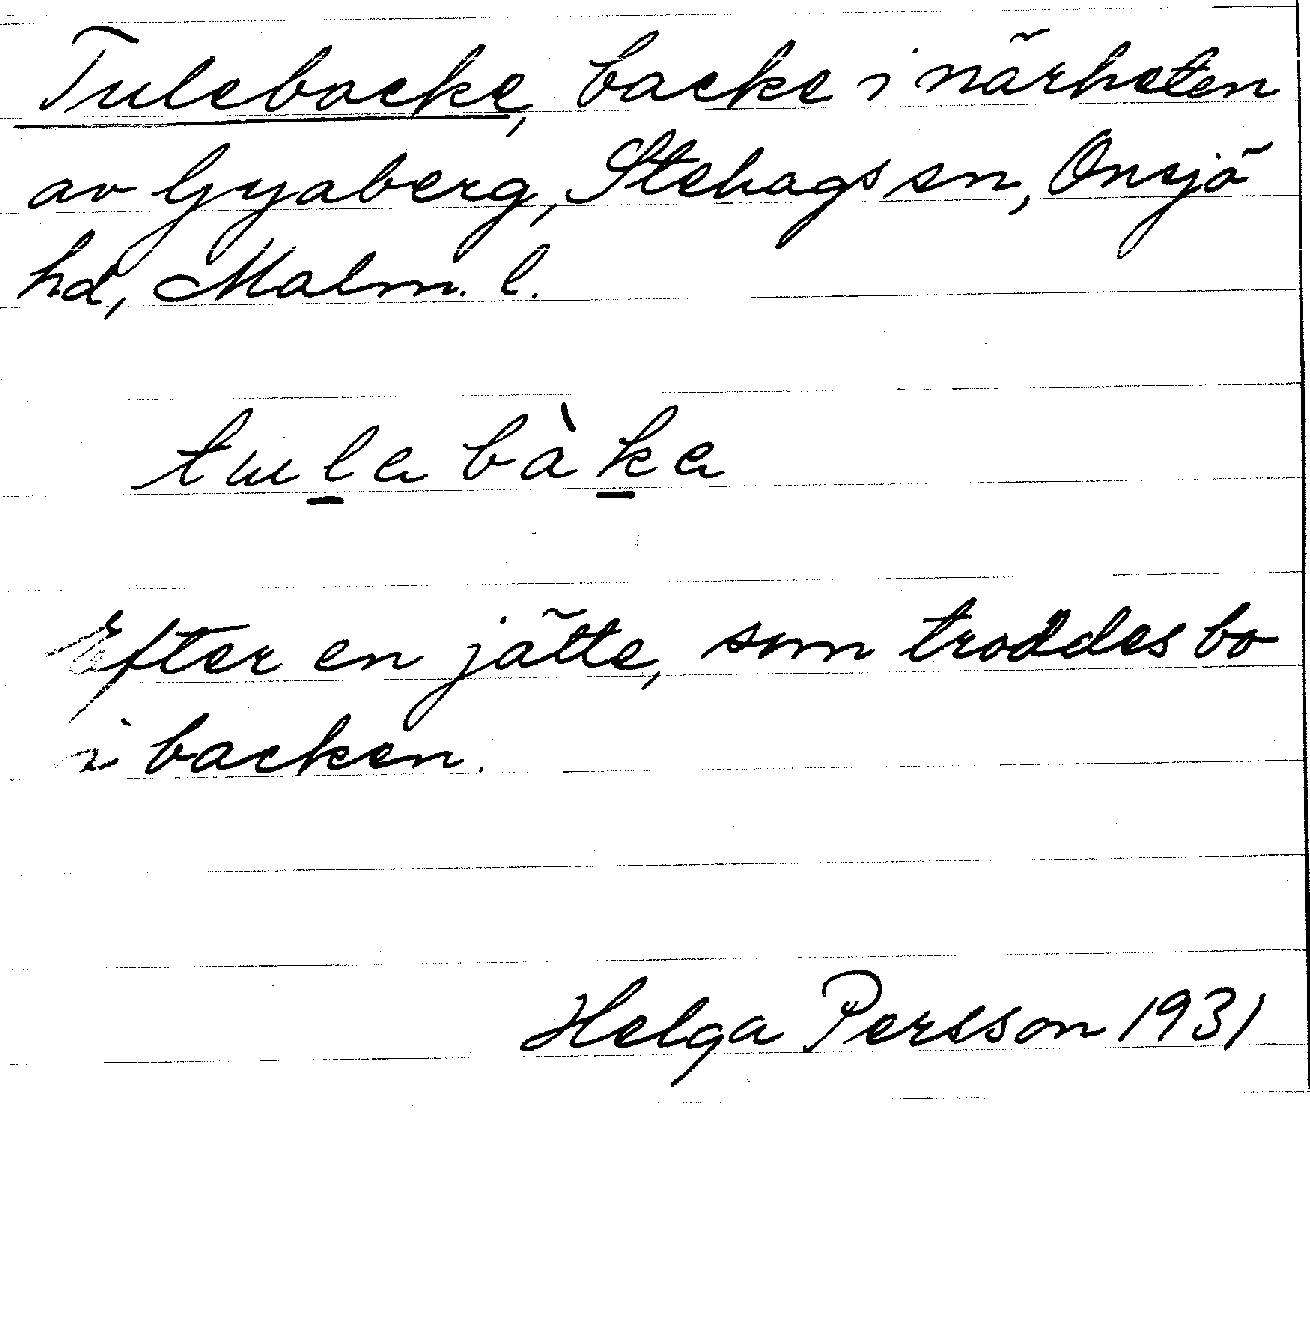 Tulebacke, backe i närheten
av Gyaberg, Stehags sn, Onsjö
hd, Malm. l.
tulabàka
Efter en jätte, som troddes bo
i backen.
Helga Persson 1931